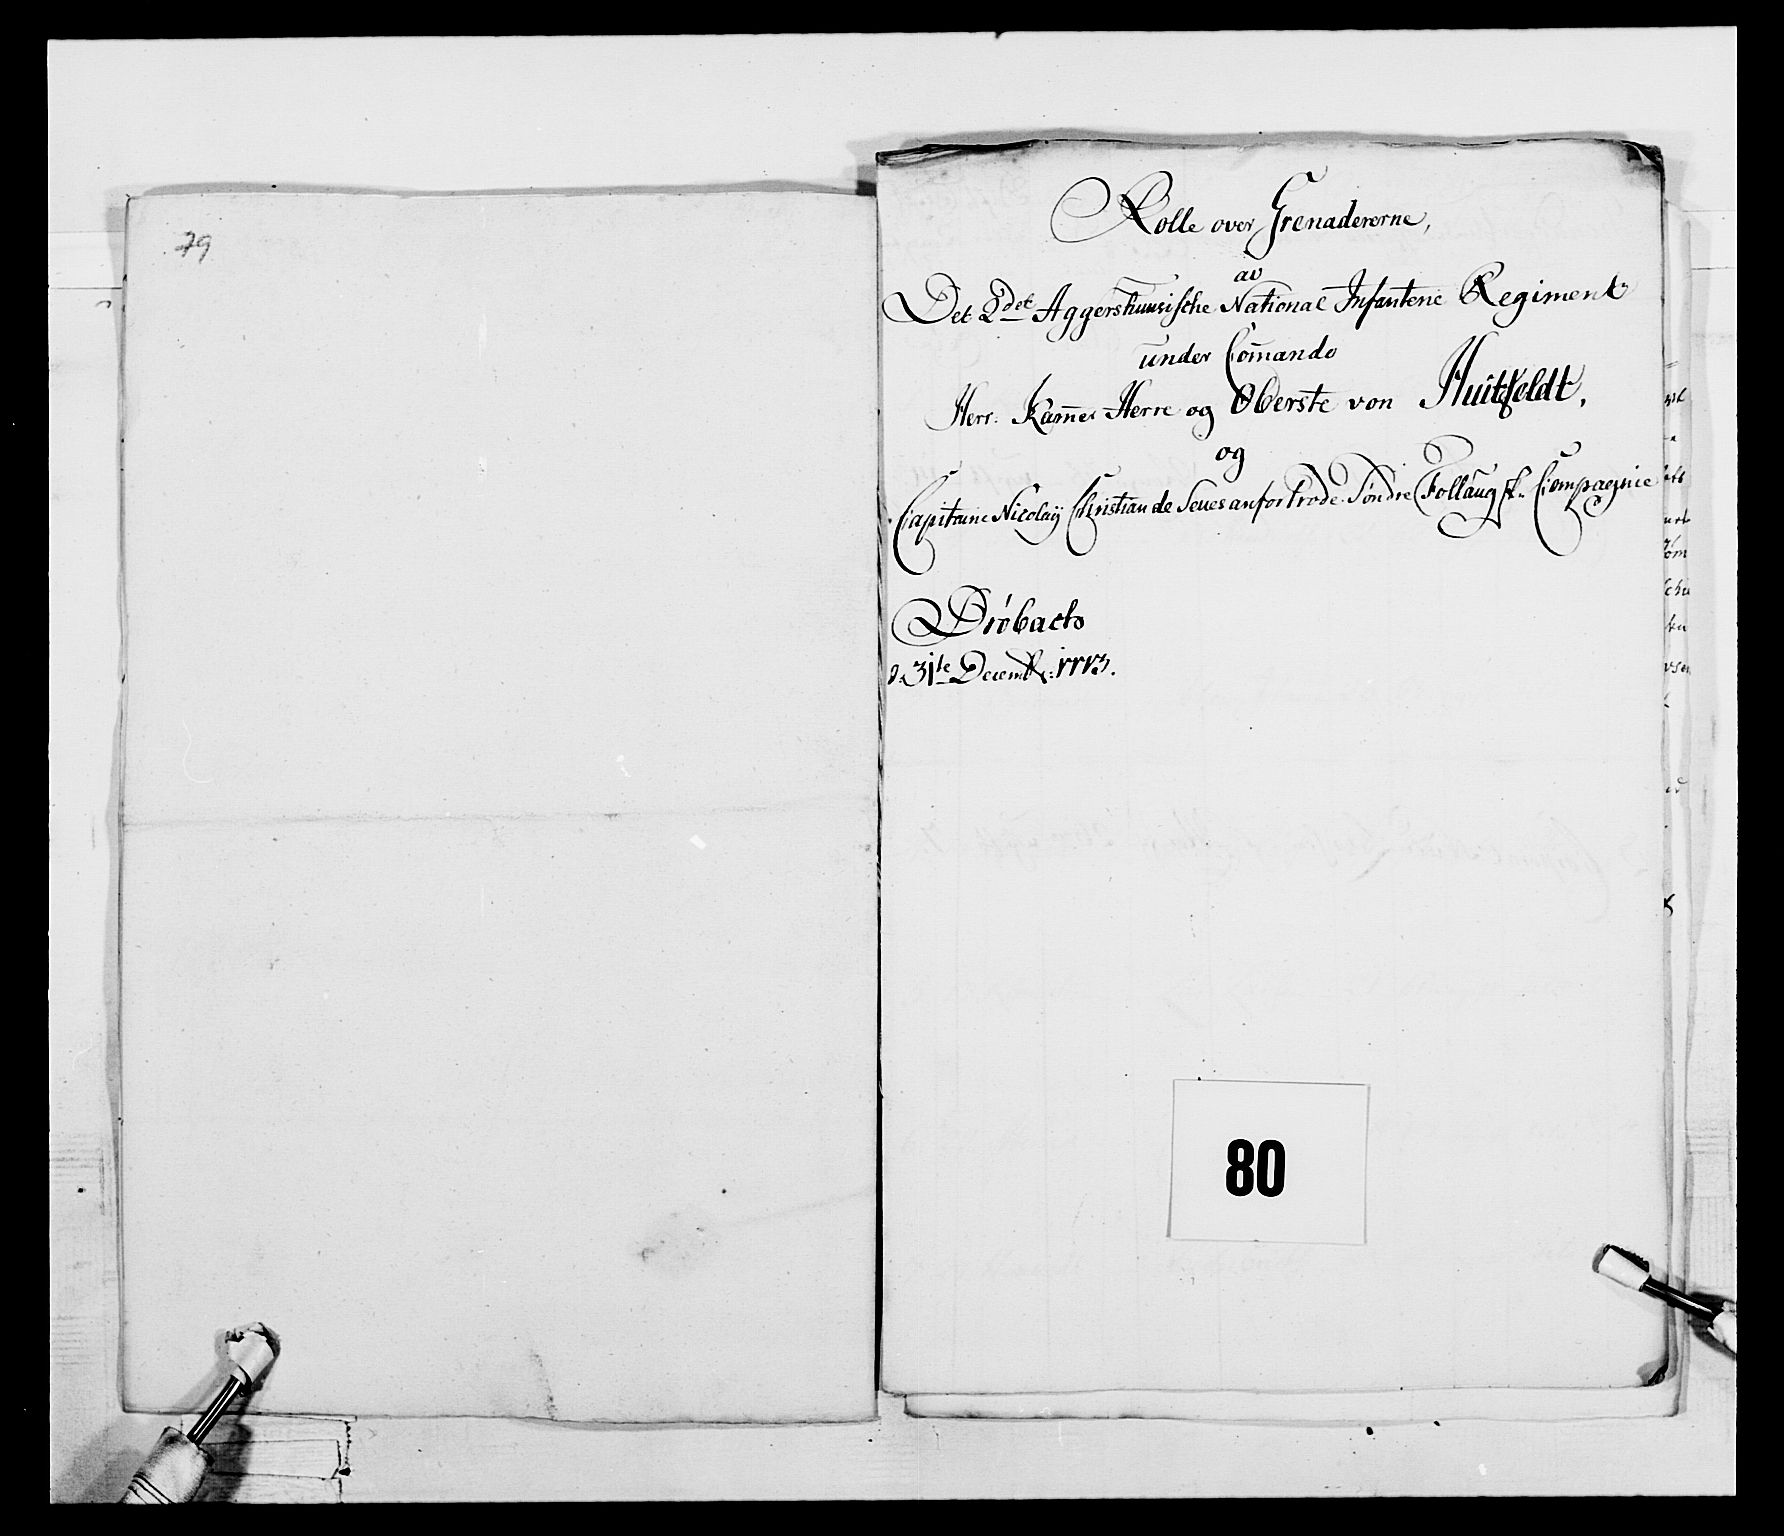 79
Rolle over Grenadererne,
av
Det 2det Aggershuusische National Infanterie Regiment
under Com̄ando
Herr Kam̄er Herre og Oberste von Huitfeldt,
og
Capitaine Nicolaij Christian de Seues anfortrode Søndre Follaugsk: Compagnie
Drøbach
d: 31te Decembr: 1773.
80